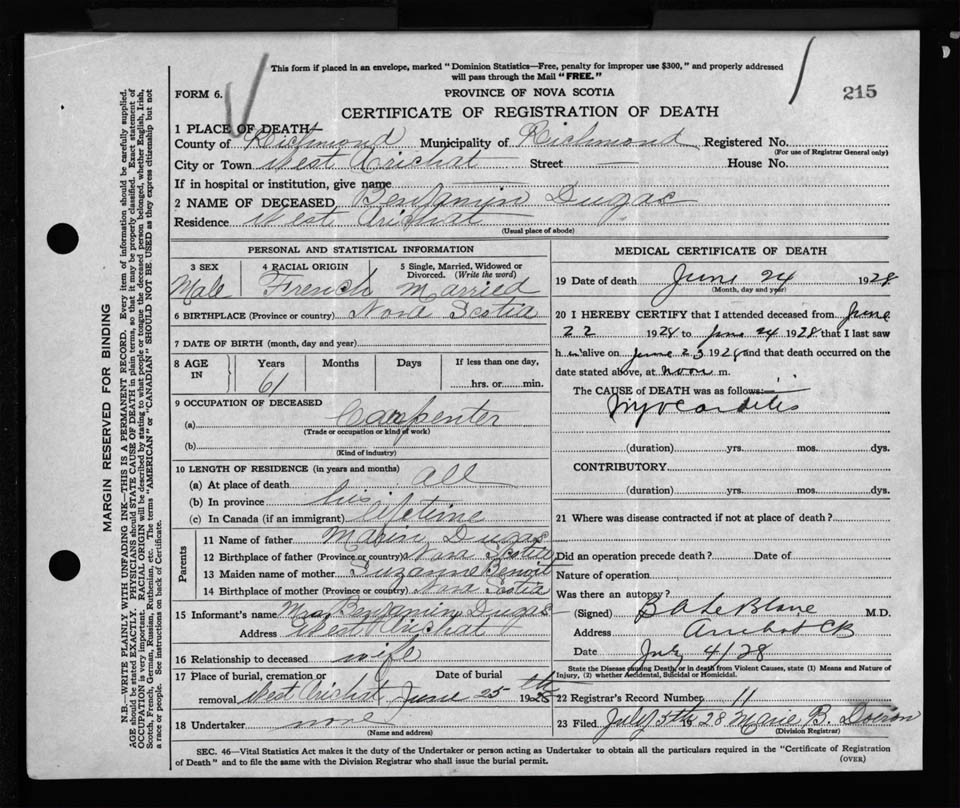 This form if placed in an envelope, marked "Dominion Statistics—Free, penalty for improper use $300," and properly addressed
will pass through the Mail "FREE."
FORM 6.
PROVINCE OF NOVA SCOTIA
215
CERTIFICATE OF REGISTRATION OF DEATH
1 PLACE OF DEATH—
County of Richmond Municipality of Richmond Registered No.
(For use of Registrar General only)
City or Town West Arichat Street — House No.
If in hospital or institution, give name
2 NAME OF DECEASED Benjamin Dugas
Residence West Arichat
(Usual place of abode)
PERSONAL AND STATISTICAL INFORMATION
3 SEX 4 RACIAL ORIGIN 5 Single, Married, Widowed or Divorced. (Write the word)
Male French Married
6 BIRTHPLACE (Province or country) Nova Scotia
7 DATE OF BIRTH (month, day and year)
8 AGE IN Years Months Days If less than one day,
61 hrs. or min.
9 OCCUPATION OF DECEASED
(a) Carpenter
(Trade or occupation or kind of work)
(b)
(Kind of industry)
10 LENGTH OF RESIDENCE (in years and months)
(a) At place of death all
(b) In province his
(c) In Canada (if an immigrant) lifetime
Parents
11 Name of father Marin Dugas
12 Birthplace of father (Province or country) Nova Scotia
13 Maiden name of mother Suzanne Benoit
14 Birthplace of mother (Province or country) Nova Scotia
15 Informant's name Mrs Benjamin Dugas
Address West Arichat
16 Relationship to deceased wife
17 Place of burial, cremation or Date of burial
removal West Arichat June 25th 1928
18 Undertaker none
(Name and address)
MEDICAL CERTIFICATE OF DEATH
19 Date of death June 24 1928
(Month, day and year)
20 I HEREBY CERTIFY that I attended deceased from June
22 1928 to June 24 1928 that I last saw
h im alive on June 23 1928 and that death occurred on the
date stated above, at noon m.
The CAUSE of DEATH was as follows:
Myocarditis
(duration) yrs. mos. dys.
CONTRIBUTORY
(duration) yrs. mos. dys.
21 Where was disease contracted if not at place of death?
Did an operation precede death? Date of
Nature of operation
Was there an autopsy?
(Signed) B A LeBlanc M.D.
Address Arichat CB
Date July 4/28
State the Disease causing Death, or in death from Violent Causes, state (1) Means and Nature of
Injury, (2) whether Accidental, Suicidal or Homicidal.
22 Registrar's Record Number 11
23 Filed July 5th 1928 Marie B. Doiron
(Division Registrar)
SEC. 46—Vital Statistics Act makes it the duty of the Undertaker or person acting as Undertaker to obtain all the particulars required in the "Certificate of Registration
of Death" and to file the same with the Division Registrar who shall issue the burial permit.
(OVER)
MARGIN RESERVED FOR BINDING
N.B.—WRITE PLAINLY WITH UNFADING INK—THIS IS A PERMANENT RECORD. Every item of information should be carefully supplied.
AGE should be stated EXACTLY. PHYSICIANS should STATE CAUSE OF DEATH in plain terms, so that it may be properly classified. Exact statement of
OCCUPATION is very important. RACIAL ORIGIN will be described by stating to what people or tongue the deceased person belonged, whether English, Irish,
Scotch, French, German, Russian, Ruthenian, etc. The terms "AMERICAN" or "CANADIAN" SHOULD NOT BE USED as they express citizenship but not
a race or people. See instructions on back of Certificate.